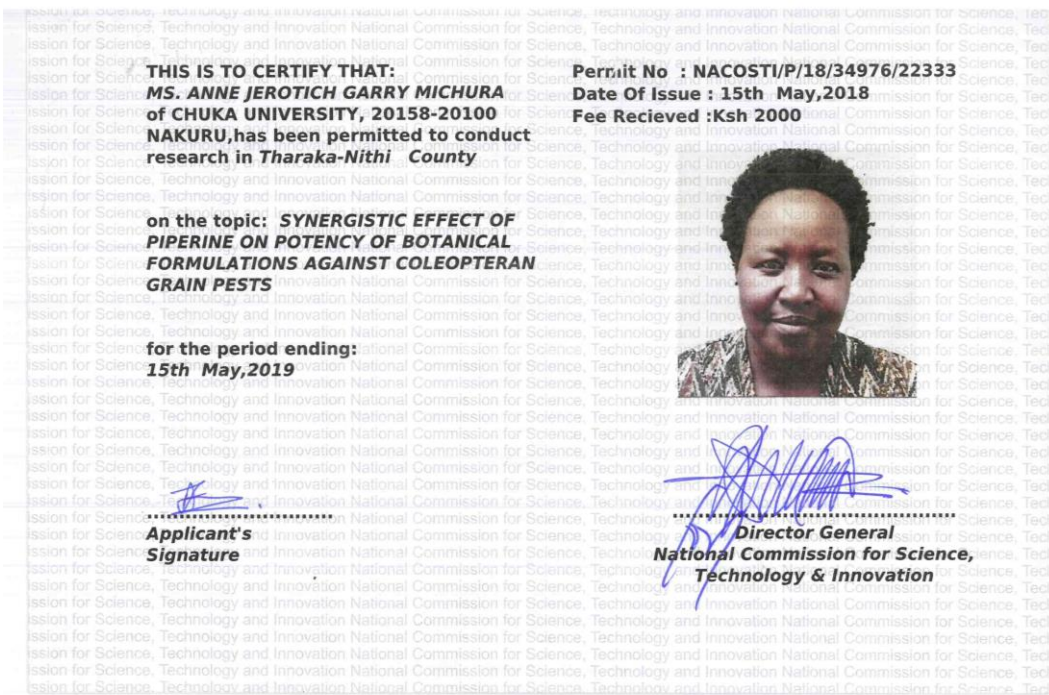 THIS IS TO CERTIFY THAT:
MS. ANNE JEROTICH GARRY MICHURA
of CHUKA UNIVERSITY, 20158-20100
NAKURU,has been permitted to conduct
research in Tharaka-Nithi County
on the topic: SYNERGISTIC EFFECT OF
PIPERINE ON POTENCY OF BOTANICAL
FORMULATIONS AGAINST COLEOPTERAN
GRAIN PESTS
for the period ending:
15th May,2019
Applicant's
Signature
Permit No : NACOSTI/P/18/34976/22333
Date Of Issue : 15th May,2018
Fee Recieved :Ksh 2000
Director General
National Commission for Science,
Technology & Innovation